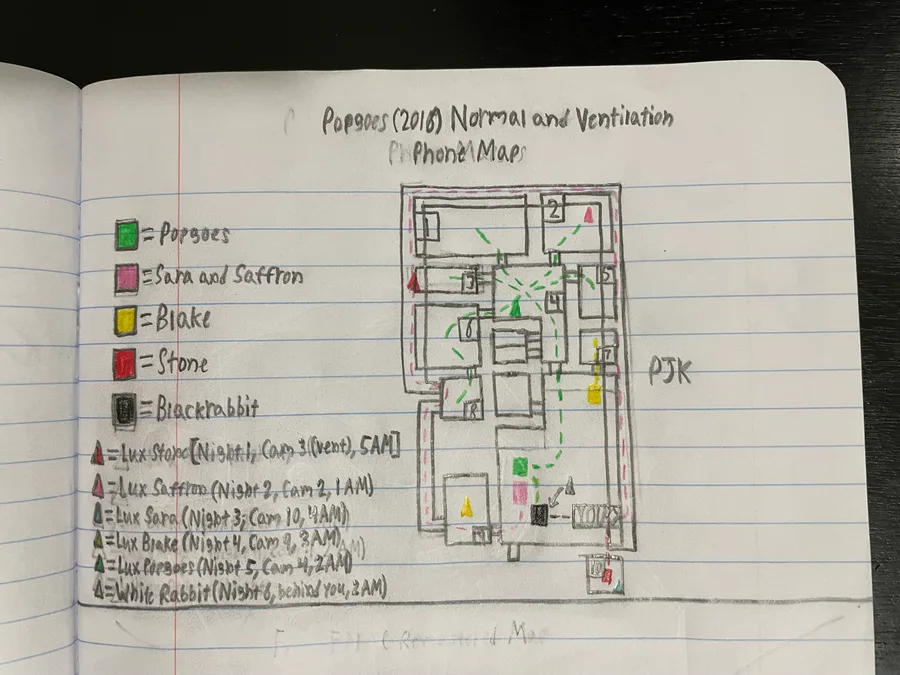 Popgoes (2016) Normal and Ventilation
Phone Maps
1
2
3
4
5
6
7
8
10
YOU
PJK
=Popgoes
=Sara and Saffron
=Blake
=Stone
=Blackrabbit
=Lux Stone[Night 1, Cam 3 (Vent), 5AM]
=Lux Saffron (Night 2, Cam 2, 1AM)
=Lux Sara (Night 3, Cam 10, 4AM)
=Lux Blake (Night 4, Cam 9, 3AM)
=Lux Popgoes (Night 5, Cam 4, 2AM)
=White Rabbit (Night 6, behind you, 2AM)